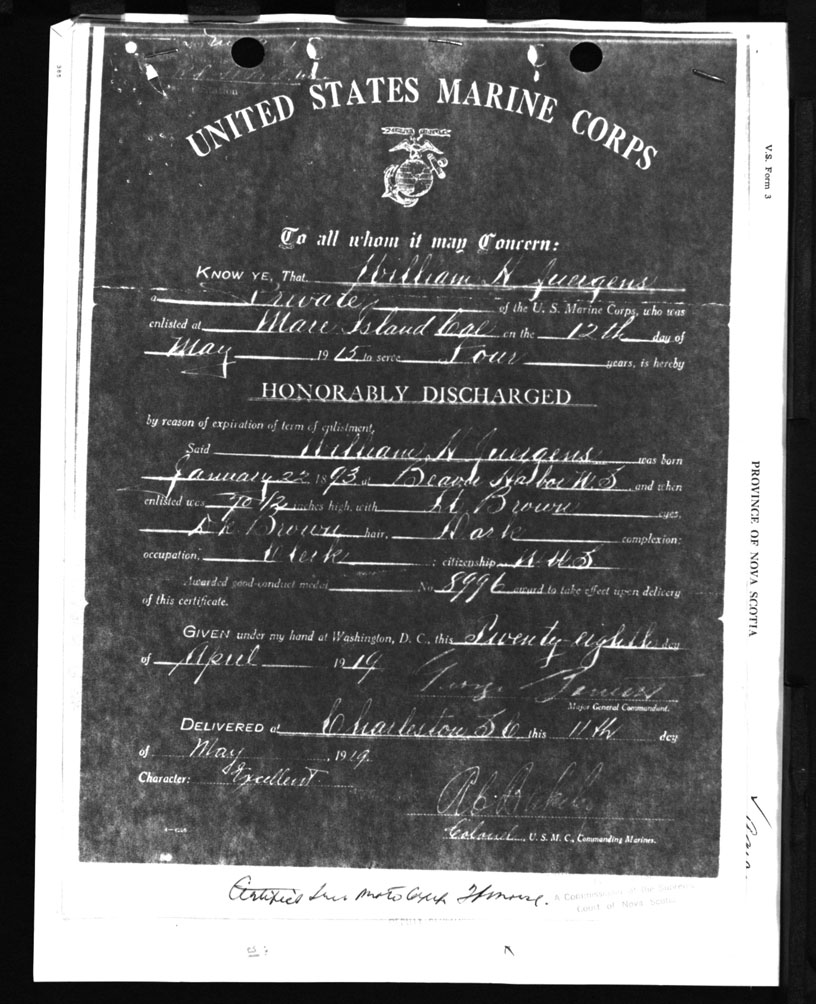 UNITED STATES MARINE CORPS
To all whom it may Concern:
KNOW YE, That William H Juergens
a Private of the U. S. Marine Corps, who was
enlisted at Mare Island Cal on the 12th day of
May 1915 to serve Four years, is hereby
HONORABLY DISCHARGED
by reason of expiration of term of enlistment,
Said William H Juergens was born
January 22 1893 at Beaver Harbor N.S and when
enlisted was 70 1/2 inches high, with Brown eyes,
Dk Brown hair, Dark complexion;
occupation, Clerk ; citizenship
Awarded good-conduct medal No. 8996 award to take effect upon delivery
of this certificate.
GIVEN under my hand at Washington, D. C., this Twenty-eighth day
of April 1919
George Barnett
Major General Commandant.
DELIVERED at Charleston S C this 11th day
of May, 1919.
Character: Excellent
Colonel, U. S. M. C., Commanding Marines.
Certified true
A Commissioner of the Supreme
Court of Nova Scotia
V.S. Form 3
PROVINCE OF NOVA SCOTIA